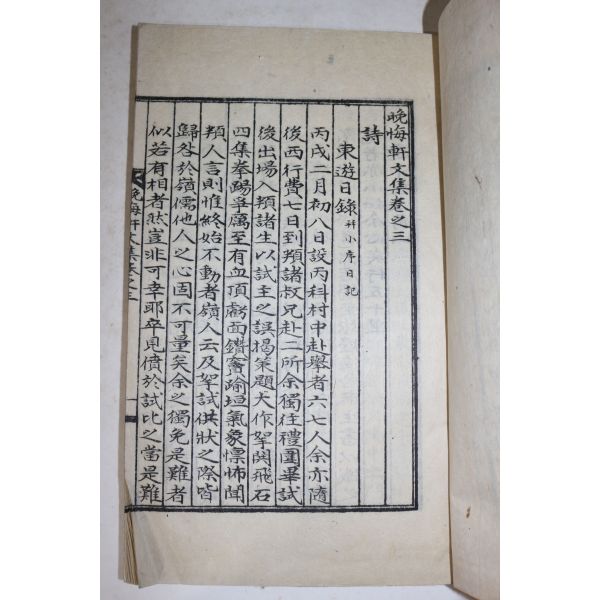 晚悔軒文集卷之三
詩
東遊日錄 幷小序日記
丙戌二月初八日設丙科村中赴擧者六七人余亦隨
後西行費七日到頖諸叔兄赴二所余獨往禮圍畢試
後出場入頖諸生以試主之誤揭策題大作挐鬨飛石
四集拳踢爭厲至有血頂面鑽奮踰垣氣象懍怖聞
頖人言則惟終始不動者嶺人云及挐試供狀之際皆
歸咎於嶺儒他人之心固不可量矣余之獨免是難者
似若有相者然豈非可幸耶卒見僨於試比之當是難
晚悔軒文集卷之三
一